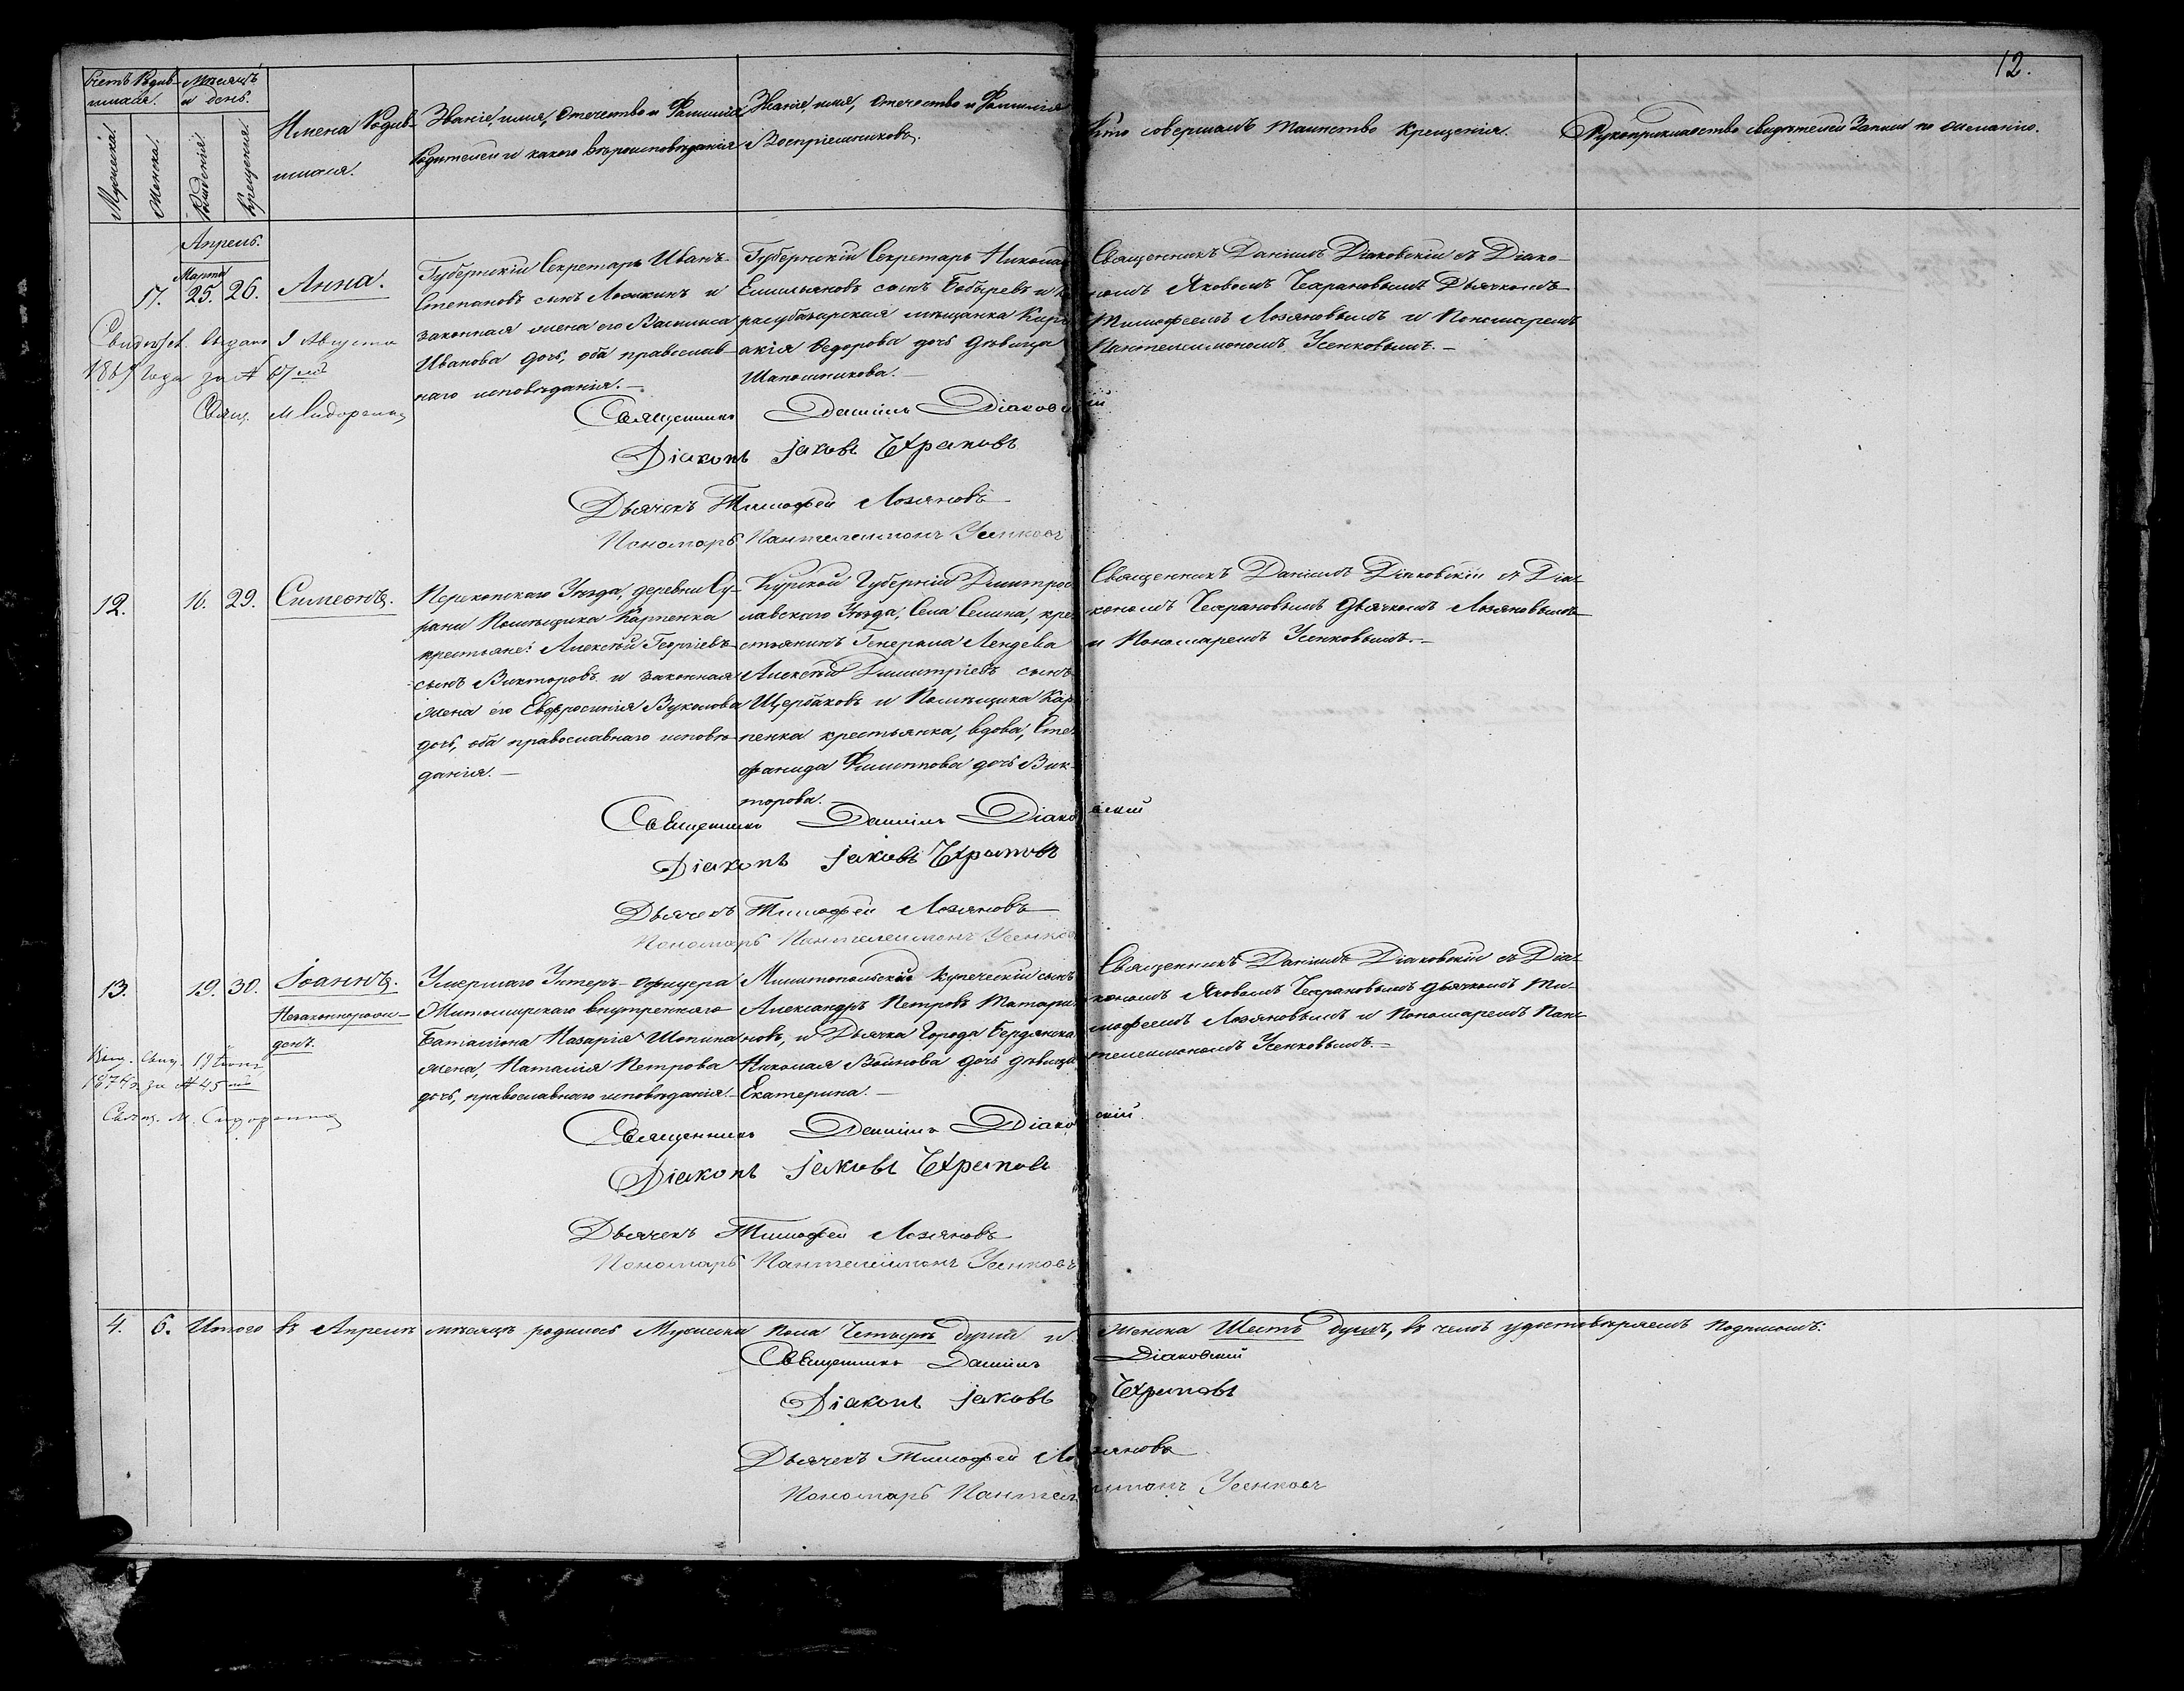 12.
Счетъ Родив-
шихся.
Мѣсяцъ
и день.
Мужеска.
Женска.
Рожденія.
Крещенія.
Имена Родив-
шихся.
Званіе, имя, Отечество и Фамилія
Родителей и какого вѣроисповѣданія
Званіе, имя, Отечество и Фамилія
Воспріемниковъ.
Кто совершалъ таинство крещенія.
Рукоприкладство свидѣтелей Записи по желанію.
Апрель.
Марта
17. 25. 26. Анна.
Губернскій Секретарь Иванъ
Степановъ сынъ Лошкинъ и
законная жена его Василиса
Иванова дочь, оба православ-
наго исповѣданія.—
Губернскій Секретарь Никола
Емильяновъ сынъ Бобыревъ и
расубазарская мѣщанка Кири
акія Федорова дочь дѣвица
Шапошникова.—
Священникъ Даніилъ Діаковскій съ Діако-
номъ Яковомъ Чехрановымъ Дьячкомъ
Тимофеемъ Лозяновымъ и Пономаремъ
Пантелеимономъ Усенковымъ.—
выдано 9 Августа
года за № 67мъ
Свящ. М Сидоренко
Священникъ Даніилъ Діаковскій
Діаконъ Іаковъ Чехрановъ
Дьячекъ Тимофей Лозяновъ
Пономарь Пантелеимонъ Усенковъ
12. 16. 29. Симеонъ.
Перекопскаго Уѣзда, деревни Су-
рани Помѣщика Карпенка
крестьяне: Алексѣй Георгіевъ
сынъ Викторовъ и законная
жена его Евфросинія Вуколова
дочь, оба православнаго исповѣ-
данія.—
Курской Губерніи Дмитрос
лавскаго Уѣзда, Села Селина, кре
стьянинъ Генерала Лендева
Алексѣй Димитріевъ сынъ
Щербаковъ и Помѣщика Кар
пенка крестьянка, вдова, Сте
фанида Филиппова дочь Вик-
торова.—
Священникъ Даніилъ Діаковскій съ Діа-
кономъ Чехрановымъ Дьячкомъ Лозяновымъ
и Пономаремъ Усенковымъ.—
Священникъ Даніилъ Діаковскій
Діаконъ Іаковъ Чехрановъ
Дьячекъ Тимофей Лозяновъ
Пономарь Пантелеимонъ Усенковъ
13. 19. 30. Іоаннъ.
Незаконнорож-
денъ.
Умершаго Унтеръ-офицера
Житомирскаго внутренняго
Баталіона Назарія Шопина
жена, Наталія Петрова
дочь, православнаго исповѣданія.—
Мелитопольскій купеческій сынъ
Александръ Петровъ Татари
новъ, и Дьячка Города Бердянска
Николая Войнова дочь дѣвица
Екатерина.—
Священникъ Даніилъ Діаковскій съ Діа-
кономъ Яковомъ Чехрановымъ дьячкомъ Ти-
мофеемъ Лозяновымъ и Пономаремъ Пан-
телеимономъ Усенковымъ.—
19 Іюня
за № 45мъ
Свящ. М. Сидоренко
Священникъ Даніилъ Діаковскій
Діаконъ Іаковъ Чехрановъ
Дьячекъ Тимофей Лозяновъ
Пономарь Пантелеимонъ Усенковъ
4. 6. Итого въ Апрелѣ мѣсяцѣ родилось Мужеска пола Четыре души и Женска Шесть душъ, въ чемъ удостовѣряемъ подписомъ:
Священникъ Даніилъ Діаковскій
Діаконъ Іаковъ Чехрановъ
Дьячекъ Тимофей Лозяновъ
Пономарь Пантелеимонъ Усенковъ